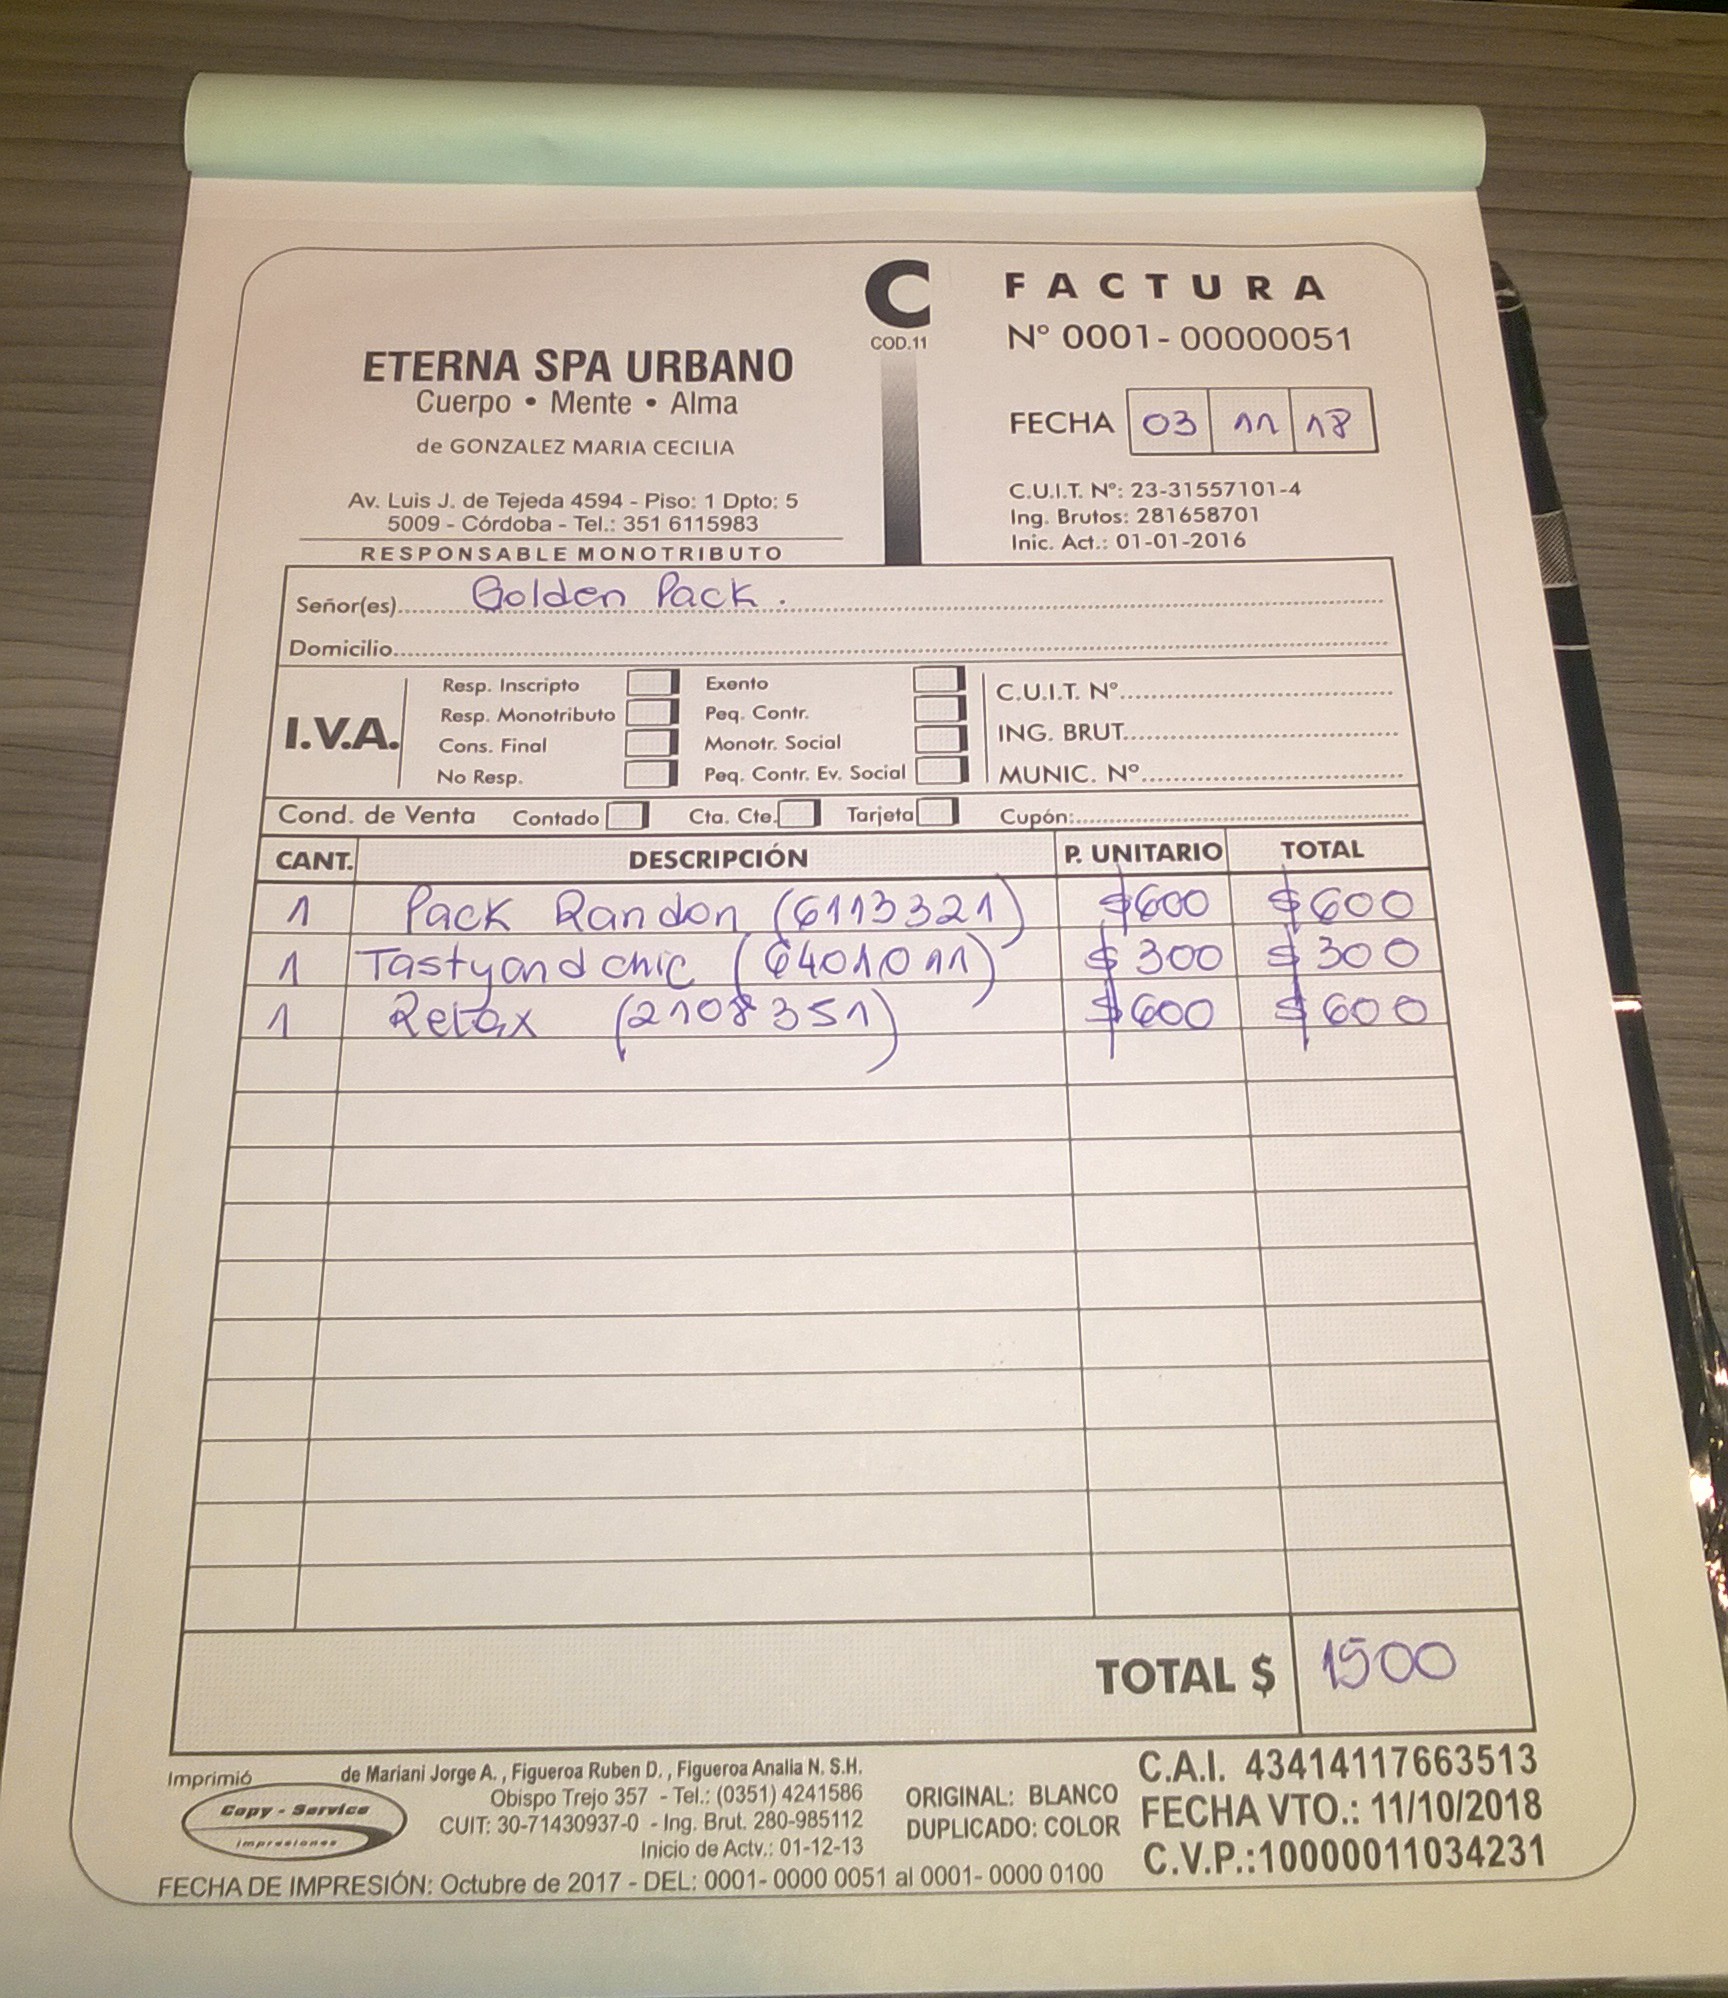 C
COD.11
FACTURA
Nº 0001-00000051
ETERNA SPA URBANO
Cuerpo • Mente • Alma
de GONZALEZ MARIA CECILIA
FECHA 03 11 18
Av. Luis J. de Tejeda 4594 - Piso: 1 Dpto: 5
5009 - Córdoba - Tel.: 351 6115983
RESPONSABLE MONOTRIBUTO
C.U.I.T. Nº: 23-31557101-4
Ing. Brutos: 281658701
Inic. Act.: 01-01-2016
Señor(es) Golden Pack.
Domicilio
I.V.A.
Resp. Inscripto Exento C.U.I.T. Nº
Resp. Monotributo Peq. Contr. ING. BRUT.
Cons. Final Monotr. Social
No Resp. Peq. Contr. Ev. Social MUNIC. Nº
Cond. de Venta Contado Cta. Cte. Tarjeta Cupón:
CANT. DESCRIPCIÓN P. UNITARIO TOTAL
1 Pack Randon (6113321) $600 $600
1 Tastyandchic (6401011) $300 $300
1 Relax (2108351) $600 $600
TOTAL $ 1500
Imprimió
Copy - Service
impresiones
de Mariani Jorge A., Figueroa Ruben D., Figueroa Analia N. S.H.
Obispo Trejo 357 - Tel.: (0351) 4241586
CUIT: 30-71430937-0 - Ing. Brut. 280-985112
Inicio de Actv.: 01-12-13
ORIGINAL: BLANCO
DUPLICADO: COLOR
C.A.I. 43414117663513
FECHA VTO.: 11/10/2018
C.V.P.:10000011034231
FECHA DE IMPRESIÓN: Octubre de 2017 - DEL: 0001- 0000 0051 al 0001- 0000 0100